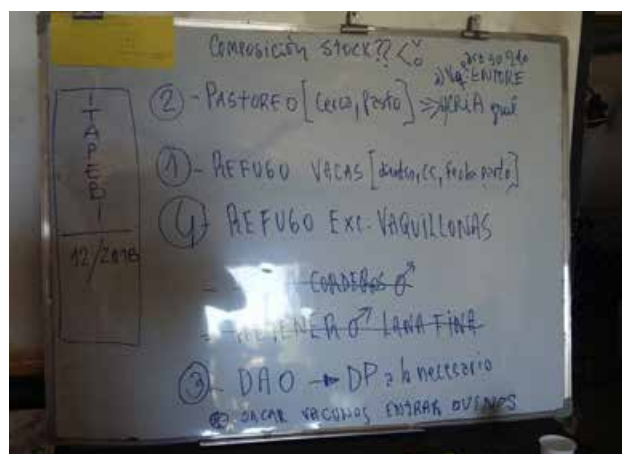 Composición stock?? <
ITAPEBI
12/2018
a) Vaq. ENTORE
② - PASTOREO [Cerco, Pasto] => CRIA
① - REFUGO VACAS [dientes, CC, Fecha parto]
④ REFUGO EXC. VAQUILLONAS
- CORDEROS ♂
- RETENER ♂ LANA FINA
③ - DAO → DP a lo necesario
SACAR VACUNOS ENTRAR OVINOS